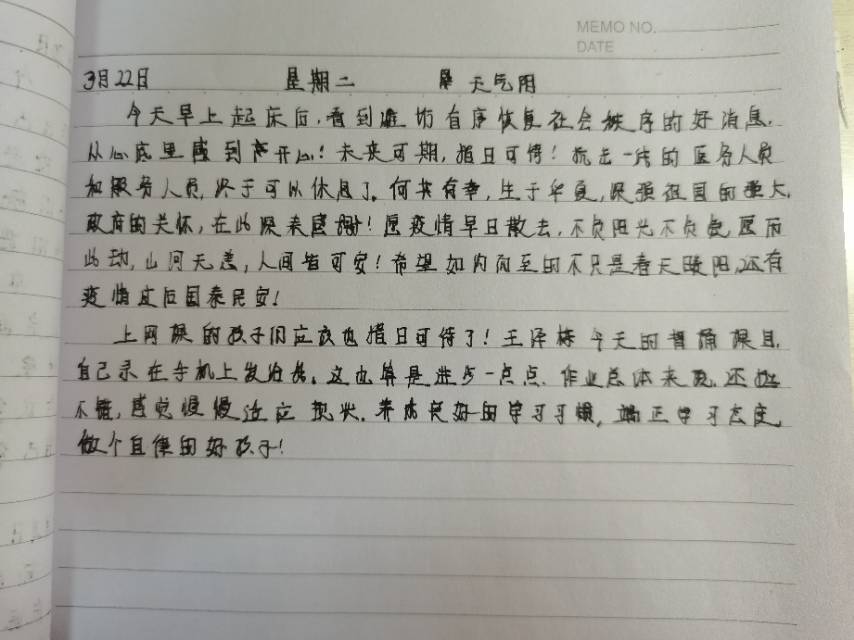 MEMO NO.
DATE
3月22日 星期二 天气阴
今天早上起床后,看到潍坊有序恢复社会秩序的好消息,
从心底里感到声开心!未来可期,指日可待!抗击一线的医务人员
和服务人员,终于可以休息了。何其有幸,生于华夏,深强祖国的强大,
政府的关怀,在此深表感谢!愿疫情早日散去,不负阳光不负愿而
此动,山河无恙,人间皆可安!希望如约而至的不只是春天暖阳,还有
疫情过后国泰民安!
上网课的孩子们应该也指日可待了!王泽栋今天的背诵课目,
自己录在手机上发给我。这也算是进步一点点.作业总体来说,还挺
不错,感觉慢慢适应 现状.养成良好的学习习惯,端正学习态度,
做个自律的好孩子!